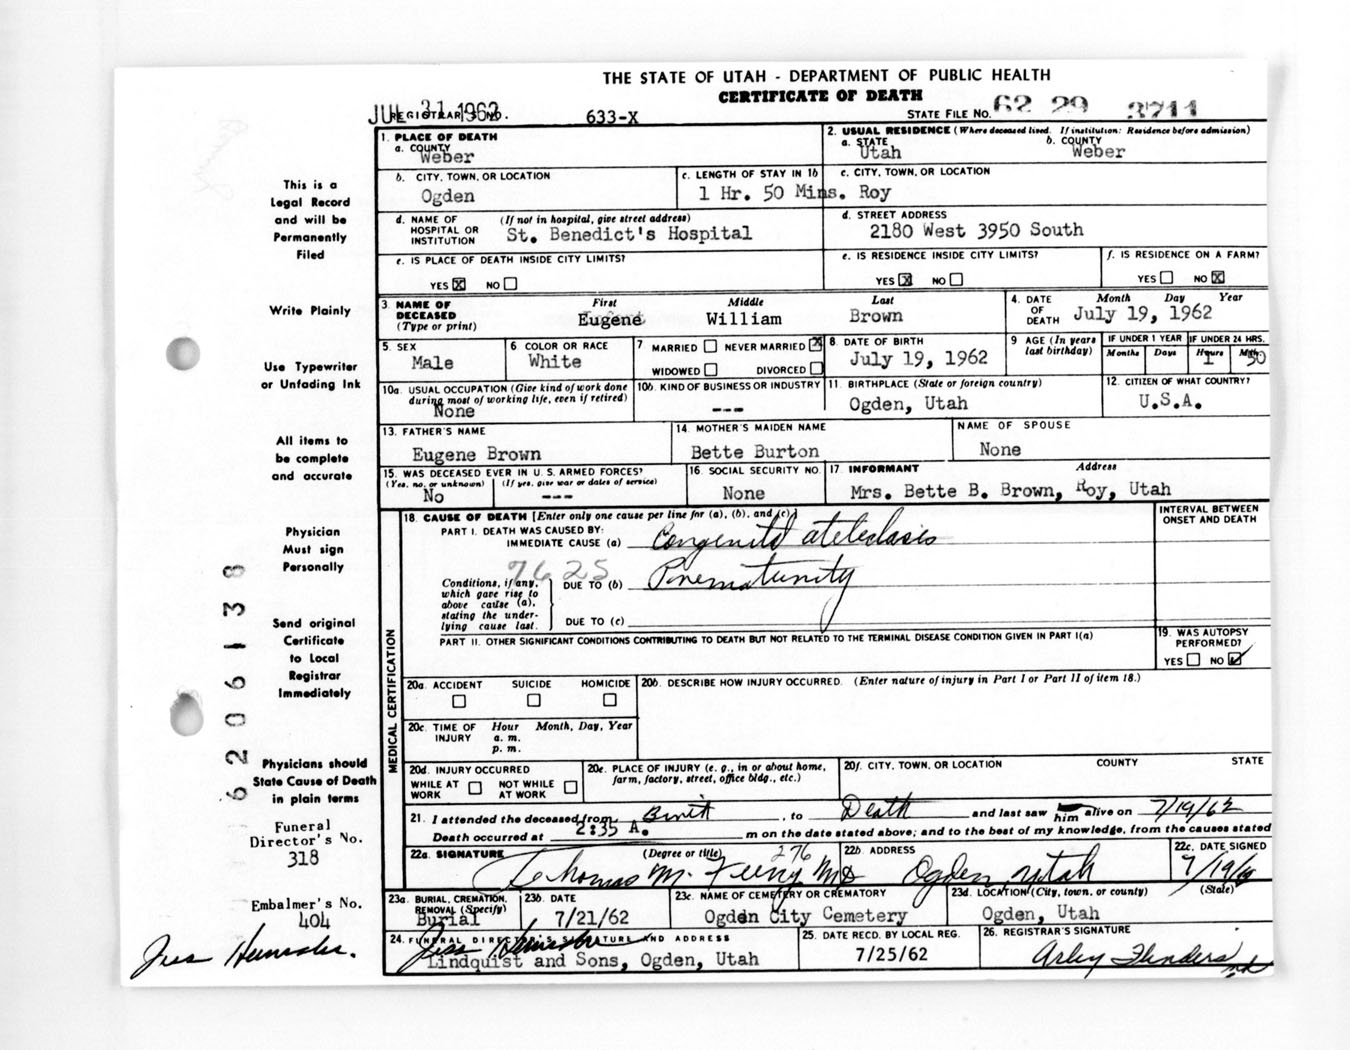 THE STATE OF UTAH - DEPARTMENT OF PUBLIC HEALTH
CERTIFICATE OF DEATH
JUL 31 1962 REGISTRAR'S NO. 633-X STATE FILE NO. 62 29 3711
1. PLACE OF DEATH
a. COUNTY
Weber
2. USUAL RESIDENCE (Where deceased lived. If institution: Residence before admission)
a. STATE b. COUNTY
Utah Weber
b. CITY, TOWN, OR LOCATION
Ogden
c. LENGTH OF STAY IN 1b
1 Hr. 50 Mins.
c. CITY, TOWN, OR LOCATION
Roy
d. NAME OF HOSPITAL OR INSTITUTION (If not in hospital, give street address)
St. Benedict's Hospital
d. STREET ADDRESS
2180 West 3950 South
e. IS PLACE OF DEATH INSIDE CITY LIMITS?
YES X NO
e. IS RESIDENCE INSIDE CITY LIMITS?
YES X NO
f. IS RESIDENCE ON A FARM?
YES NO X
3. NAME OF DECEASED (Type or print)
First Middle Last
Eugene William Brown
4. DATE OF DEATH Month Day Year
July 19, 1962
5. SEX
Male
6 COLOR OR RACE
White
7 MARRIED NEVER MARRIED X
WIDOWED DIVORCED
8. DATE OF BIRTH
July 19, 1962
9 AGE (In years last birthday)
IF UNDER 1 YEAR IF UNDER 24 HRS.
Months Days Hours Min.
1 50
10a. USUAL OCCUPATION (Give kind of work done during most of working life, even if retired)
None
10b. KIND OF BUSINESS OR INDUSTRY
---
11. BIRTHPLACE (State or foreign country)
Ogden, Utah
12. CITIZEN OF WHAT COUNTRY?
U.S.A.
13. FATHER'S NAME
Eugene Brown
14. MOTHER'S MAIDEN NAME
Bette Burton
NAME OF SPOUSE
None
15. WAS DECEASED EVER IN U. S. ARMED FORCES?
(Yes, no, or unknown) (If yes, give war or dates of service)
No ---
16. SOCIAL SECURITY NO.
None
17. INFORMANT Address
Mrs. Bette B. Brown, Roy, Utah
18. CAUSE OF DEATH [Enter only one cause per line for (a), (b), and (c).]
INTERVAL BETWEEN ONSET AND DEATH
PART I. DEATH WAS CAUSED BY:
IMMEDIATE CAUSE (a) Congenital atelectasis
7625
Conditions, if any, which gave rise to above cause (a), stating the underlying cause last.
DUE TO (b) Prematurity
DUE TO (c)
PART II. OTHER SIGNIFICANT CONDITIONS CONTRIBUTING TO DEATH BUT NOT RELATED TO THE TERMINAL DISEASE CONDITION GIVEN IN PART I(a)
19. WAS AUTOPSY PERFORMED?
YES NO ✓
MEDICAL CERTIFICATION
20a. ACCIDENT SUICIDE HOMICIDE
20b. DESCRIBE HOW INJURY OCCURRED. (Enter nature of injury in Part I or Part II of item 18.)
20c. TIME OF INJURY Hour Month, Day, Year
a. m.
p. m.
20d. INJURY OCCURRED
WHILE AT WORK NOT WHILE AT WORK
20e. PLACE OF INJURY (e. g., in or about home, farm, factory, street, office bldg., etc.)
20f. CITY, TOWN, OR LOCATION COUNTY STATE
21. I attended the deceased from Birth, to Death and last saw him alive on 7/19/62
Death occurred at 2:35 A. m on the date stated above; and to the best of my knowledge, from the causes stated
22a. SIGNATURE (Degree or title) 276
Thomas M. Feeny MD
22b. ADDRESS
Ogden Utah
22c. DATE SIGNED
7/19/6
23a. BURIAL, CREMATION, REMOVAL (Specify)
Burial
23b. DATE
7/21/62
23c. NAME OF CEMETERY OR CREMATORY
Ogden City Cemetery
23d. LOCATION (City, town, or county) (State)
Ogden, Utah
24. FUNERAL DIRECTOR'S SIGNATURE AND ADDRESS
Lindquist and Sons, Ogden, Utah
25. DATE RECD. BY LOCAL REG.
7/25/62
26. REGISTRAR'S SIGNATURE
Arley Flinders md
This is a
Legal Record
and will be
Permanently
Filed
Write Plainly
Use Typewriter
or Unfading Ink
All items to
be complete
and accurate
Physician
Must sign
Personally
Send original
Certificate
to Local
Registrar
Immediately
Physicians should
State Cause of Death
in plain terms
Funeral
Director's No.
318
Embalmer's No.
404
6206138